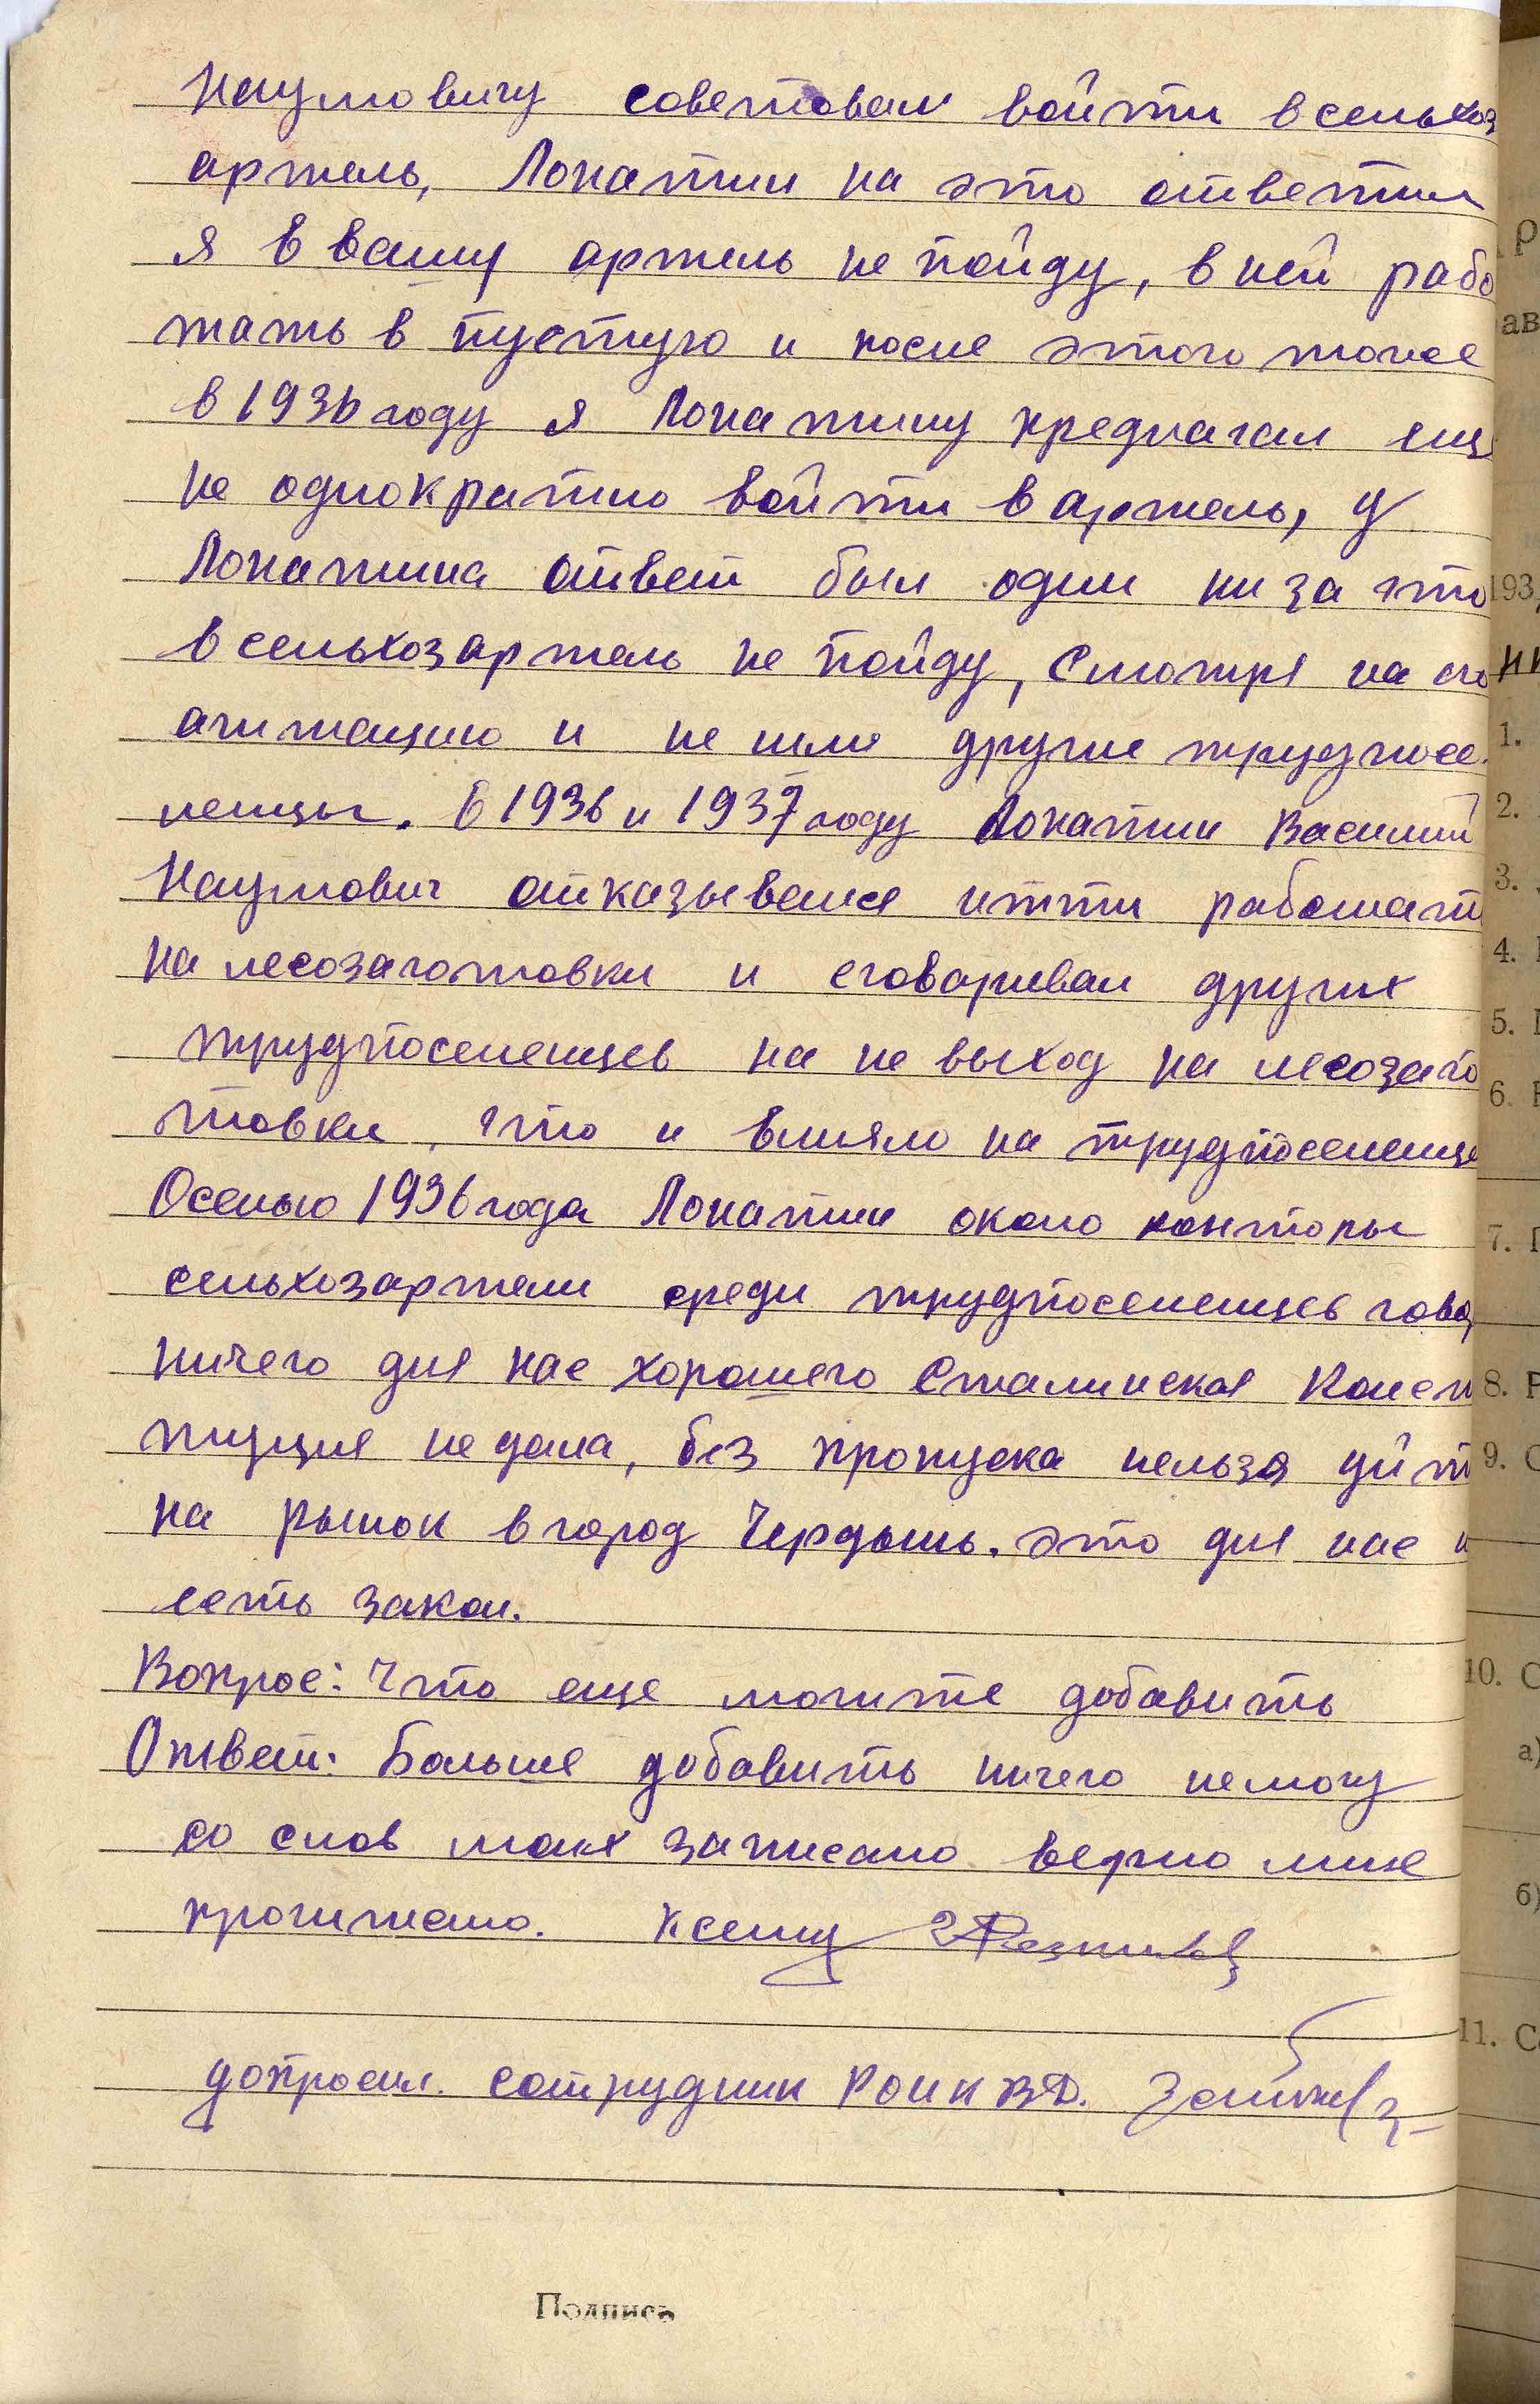 Наумовичу советовал войти в сельхоз
артель, Лопатин на это ответил
я в вашу артель не пойду, в ней рабо
тать в пустую и после этого тоже
в 1936 году я Лопатину предлагал ещ
не однократно войти в артель, у
Лопатина ответ был один ни за что
в сельхозартель не пойду, Смотря на его
агитацию и не шли другие трудпосе
ленцы. В 1936 и 1937 году Лопатин Василий
Наумович отказывался итти работат
на лесозаготовки и сговаривал других
трудпоселенцев на не выход на лесозаго
товки, что и влияло на трудпоселенце
Осенью 1936 года Лопатин около конторы
сельхозартели среди трудпоселенцев гово
ничего для нас хорошего Сталинская Конст
туция не дала, без пропуска нельзя уйт
на рынок в город Чердынь. это для нас н
есть закон.
Вопрос: Что еще можите добавить
Ответ: Больше добавить ничего немогу
со слов моих записано верно мне
прочитано. К сему
допросил. сотрудник РОНКВД.
Подпись
Р
ав
193
НК
1.
2.
3.
4.
5.
6.
7.
8. Р
9. С
10. С
а)
б)
11. С